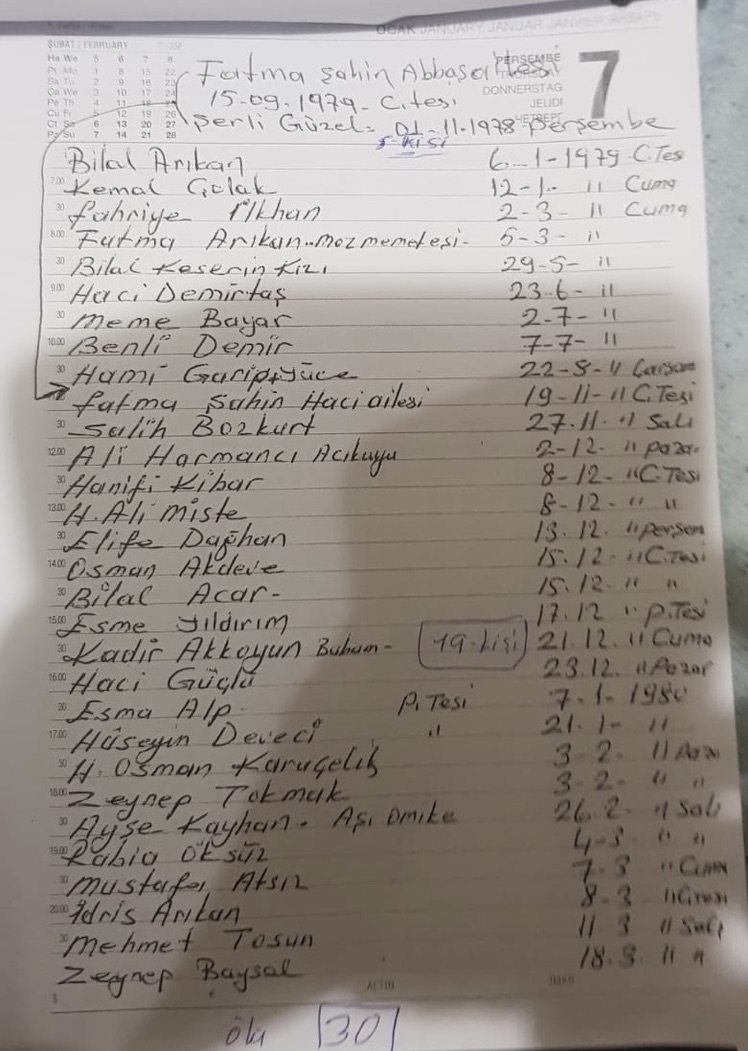 OCAK JANUARY JANUAR JANVIER
ŞUBAT / FEBRUARY
Ha We 5 6 7 8
Pt Mo 1 8 15 22
Sa Tu 2 9 16 23
Ça We 3 10 17 24
Pe Th 4 11 18 25
Cu Fr 5 12 19 26
Ct Sa 6 13 20 27
Pz Su 7 14 21 28
PERŞEMBE
DONNERSTAG
JEUDI
7
Fatma Şahin Abbasailesi
15-09-1979- C.tesi
Şerli Güzel- 01-11-1978 Perşembe
5-kişi
Bilal Arıkan 6-1-1979 C.Tes
7.00 Kemal Çolak 12-1- " Cuma
30 fahriye İlkhan 2-3- " Cuma
8.00 Fatma Arıkan-mozmemetesi- 5-3- "
30 Bilal Keserin Kızı 29-5- "
9.00 Haci Demirtaş 23-6- "
30 Meme Bayar 2-7- "
10.00 Benli Demir 7-7- "
30 Hami Garipyüce 22-8-" Çarşam
fatma Şahin Haciailesi 19-11-" C.Tesi
30 Salih Bozkurt 27.11. " Salı
12.00 Ali Harmancı Acıkuyu 2-12- " pazar
30 Hanifi Kibar 8-12- "C.Tesi
13.00 H.Ali miste 8-12- " "
30 Elife Dağhan 13.12. "perşem
14.00 Osman Akdeve 15.12-"C.Tesi
30 Bilal Acar- 15.12. " "
15.00 Esme Yıldırım 17.12 " p.Tesi
30 Kadir Akkoyun Bubam- 19-kişi 21.12. " Cuma
16.00 Haci Güçlü 23.12. "Pazar
30 Esma Alp- P.Tesi 7-1-1980
17.00 Hüseyin Deveci " 21.1- "
30 H. Osman Karaçelik 3-2. " Paza
18.00 Zeynep Tokmak 3-2- " "
30 Ayşe Kayhan- Aşı Omike 26.2- " Salı
19.00 Rabia Öksüz 4-3- " "
30 Mustafa Atsız 7-3 " Cuma
20.00 İdris Arıkan 8-3
30 Mehmet Tosun 11 3 " Salı
Zeynep Baysal 18.3. " "
ALTIN
ölü 30